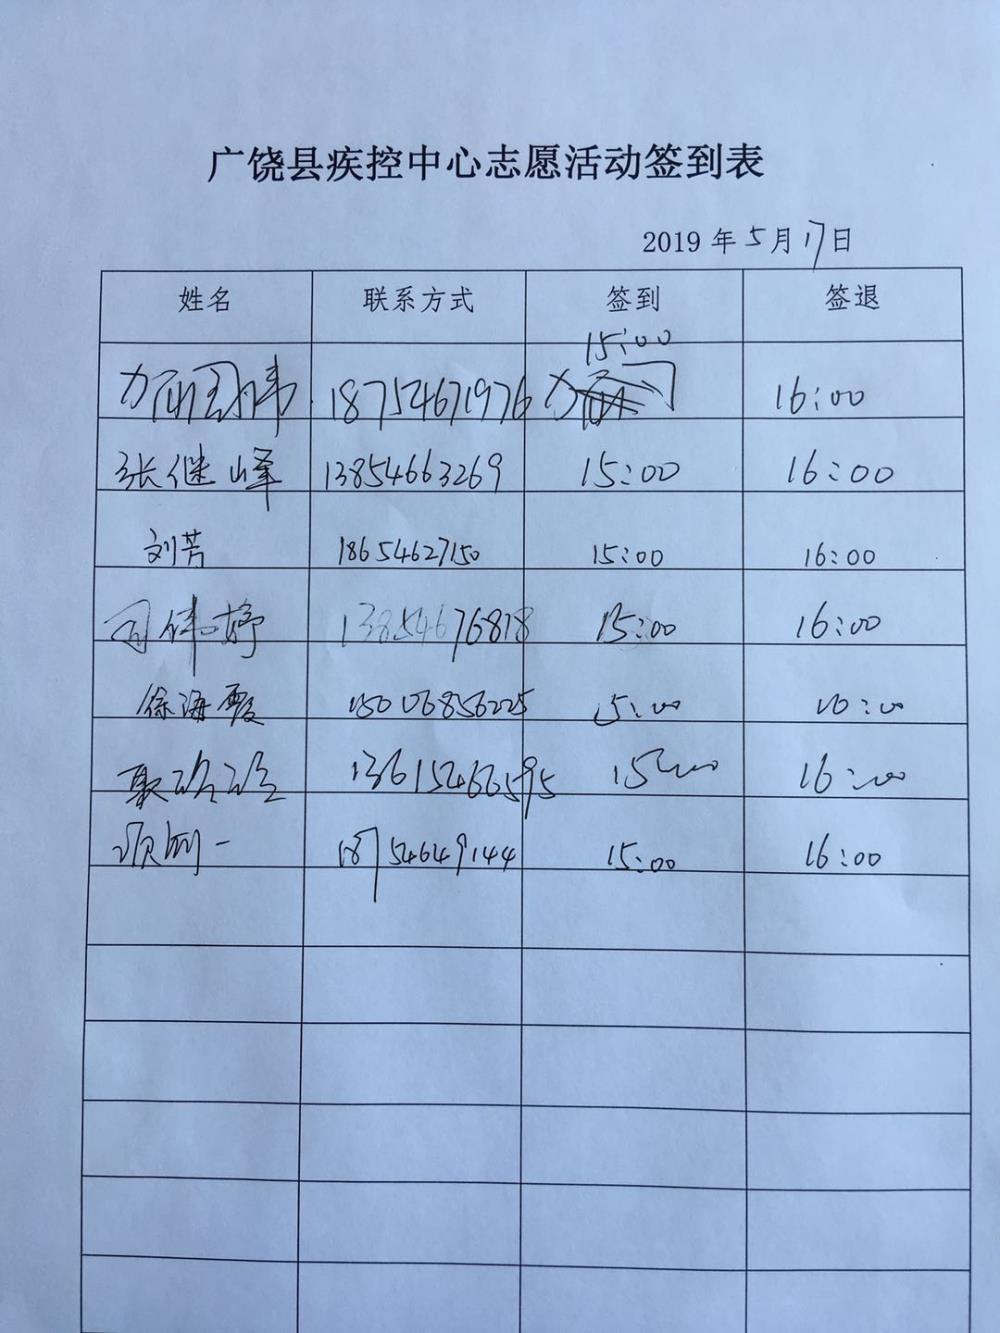 广饶县疾控中心志愿活动签到表
2019年5月17日
姓名 联系方式 签到 签退
18754671976 15:00 16:00
张继峰 13854663269 15:00 16:00
刘芳 18654627150 15:00 16:00
司伟婷 13854676818 15:00 16:00
徐海霞 15006856225 15:00 16:00
聂 13615466595 15:00 16:00
18754649144 15:00 16:00